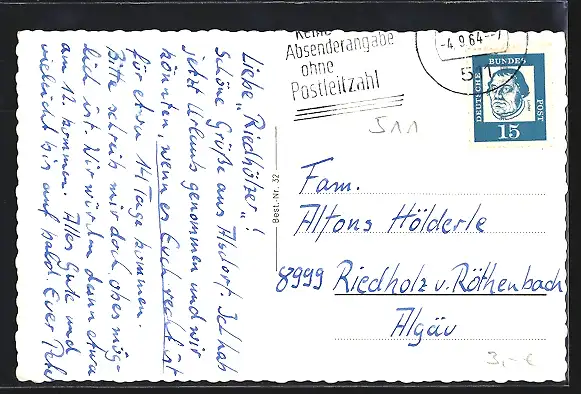 Liebe „Riedhölzer"!
Schöne Grüße aus Alsdorf. Ich hab
jetzt Urlaub genommen und wir
könnten, wenn es Euch recht ist
für etwa 14 Tage kommen.
Bitte schreib mir doch, ob es mög-
lich ist. Wir würden dann etwa
am 12. kommen. Alles Gute und
vielleicht bis auf bald Euer Peter
Best.-Nr. 32
Keine
Absenderangabe
ohne
Postleitzahl
-4.9.64--7
511
DEUTSCHE BUNDESPOST
15
511
Fam.
Alfons Hölderle
8999 Riedholz v. Röthenbach
Algäu
3,- €